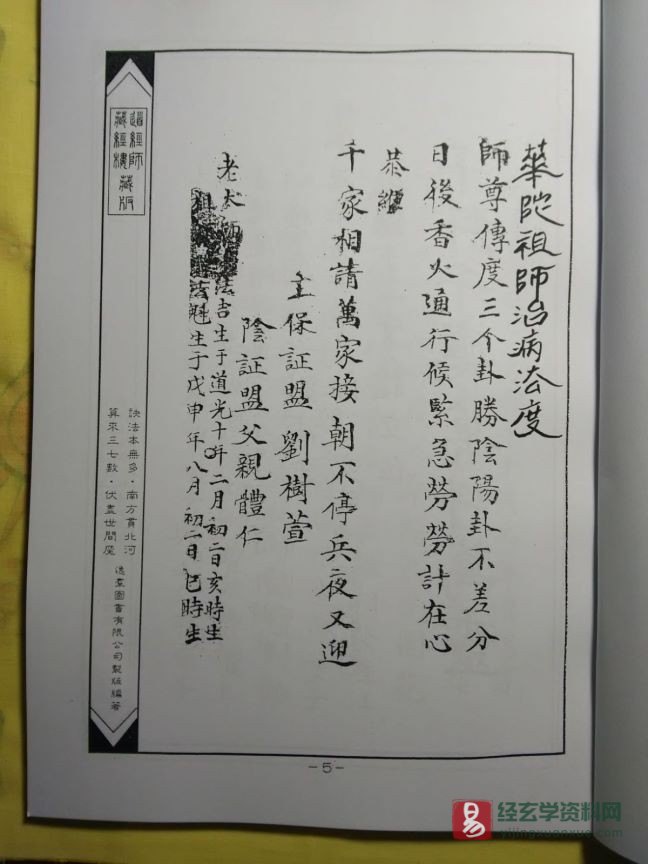 華陀祖師治病法度
師尊傳度三个卦勝陰陽卦不差分
日後香火通行候緊急勞勞計在心
恭維
千家相請萬家接朝不停兵夜又迎
主保証盟劉樹萱
陰証盟父親體仁
老太師法吉生于道光十年二月初二日亥時生
祖法魁生于戊申年八月初二日巳時生
道經師
藏經樓藏版
訣法本無多・南方貫北河
算來三七數・伏盡世間魔
逸羣圖書有限公司製版編著
-5-
易
经玄学资料网
yijingxuanxue.com